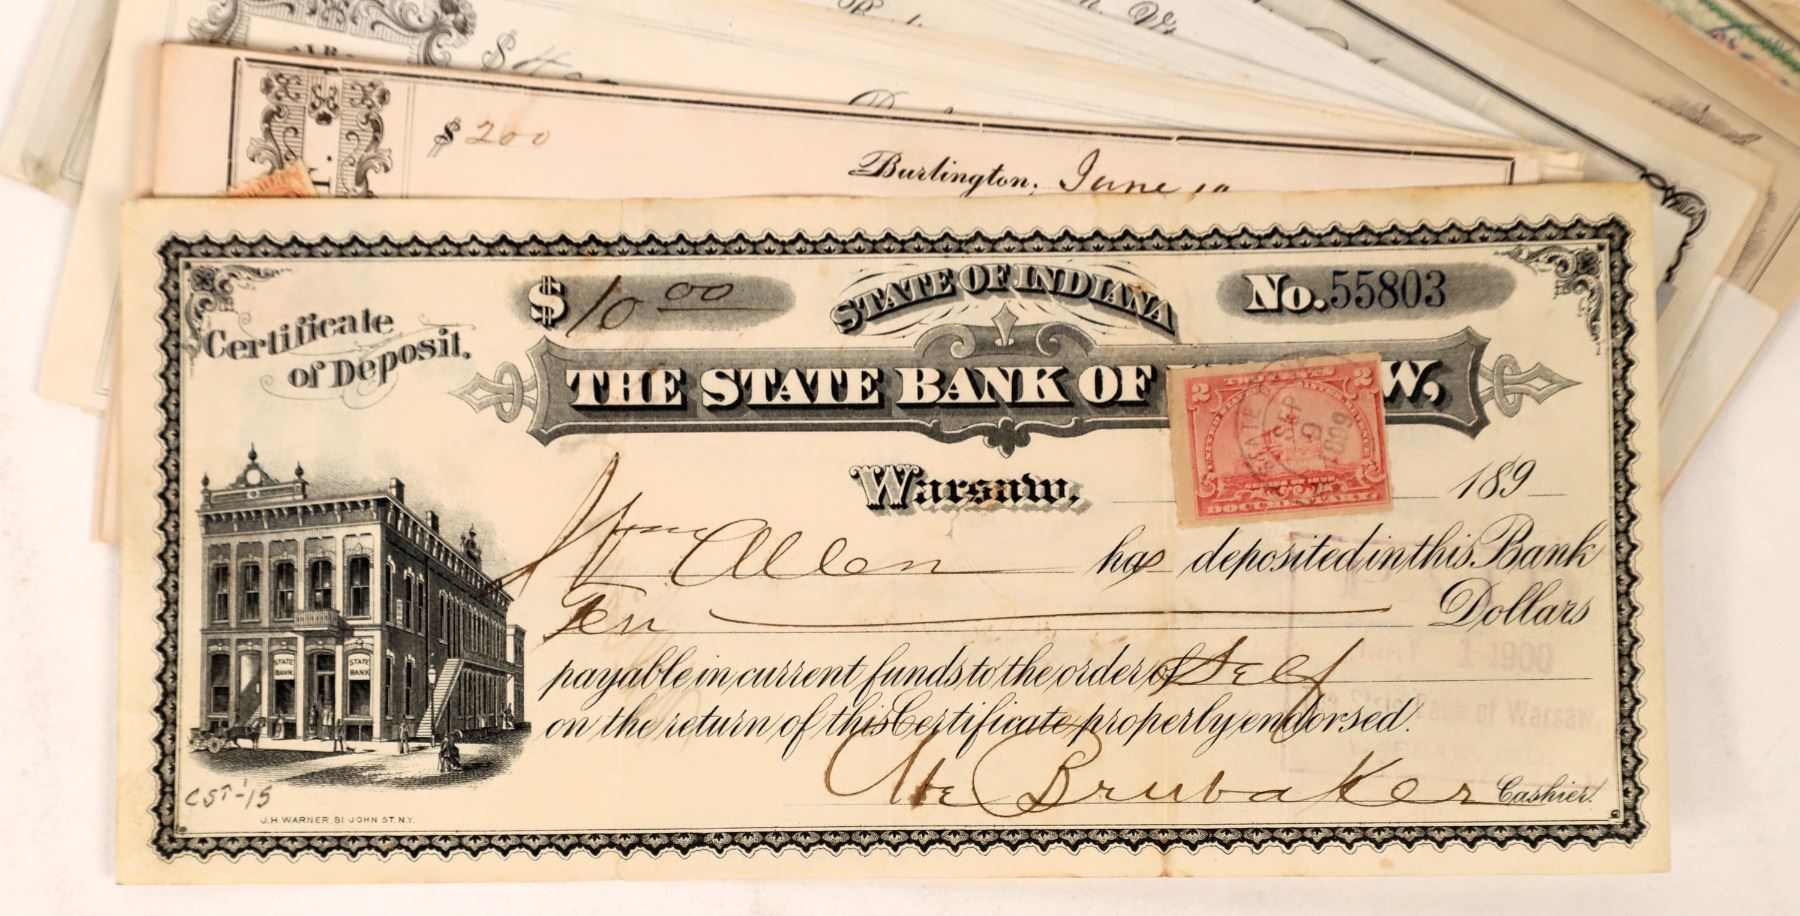 $ 200
Burlington, June
Certificate
of Deposit.
$ 10 00
STATE OF INDIANA
No. 55803
THE STATE BANK OF W,
2 TWO CENTS 2
DOCUMENTARY
SEP
9
1899
Warsaw, 189
Wm Allen has deposited in this Bank
Ten Dollars
payable in current funds to the order of Self
on the return of this Certificate properly endorsed.
Abe Brubaker Cashier.
STATE BANK
STATE BANK
1 1900
State Bank of Warsaw,
CST-'15
J.H. WARNER 81 JOHN ST. N.Y.